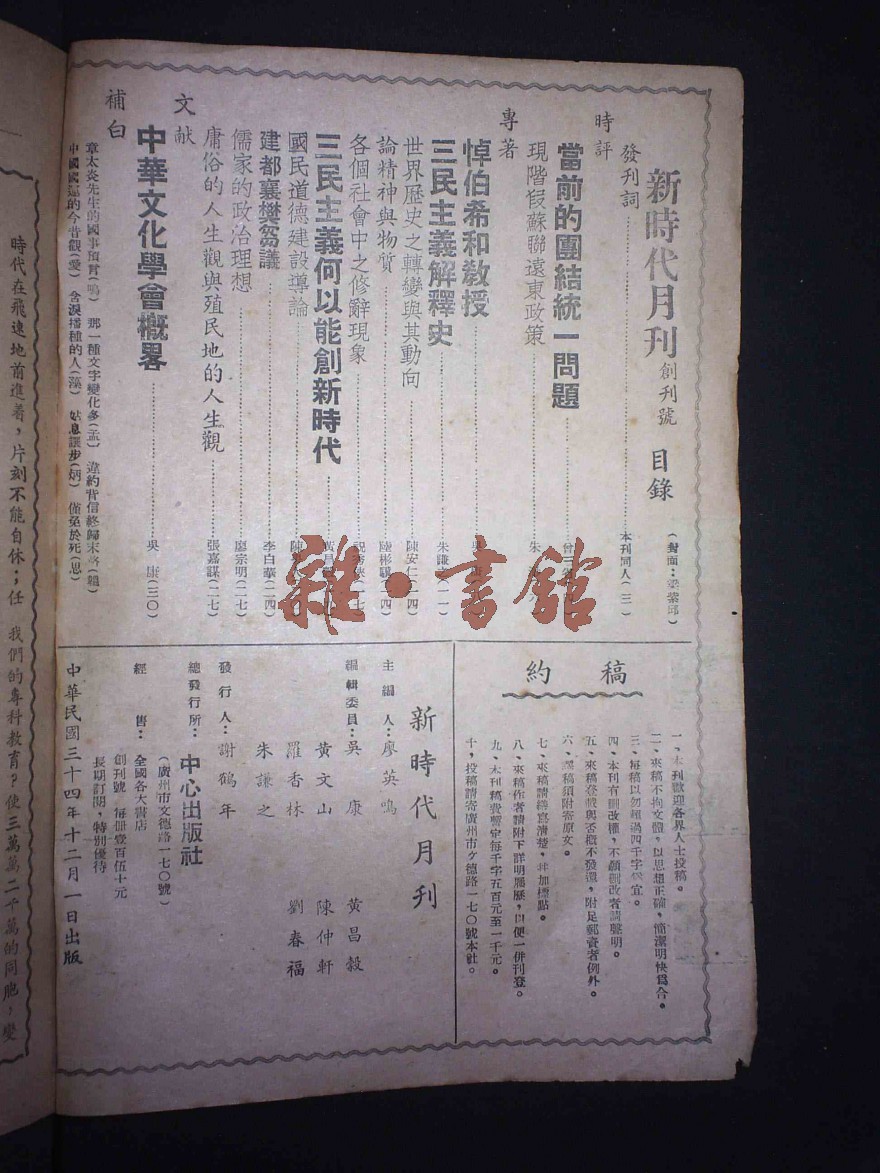 新時代月刊 創刊號 目錄
(封面:梁紫邱)
發刊詞 本刊同人(三)
時評
當前的團結統一問題
現階段蘇聯遠東政策 朱
專著
悼伯希和教授
三民主義解釋史 朱謙之(一一)
世界歷史之轉變與其動向 陳安仁(一四)
論精神與物質
各個社會中之修辭現象
三民主義何以能創新時代
國民道德建設導論
建都襄樊芻議 李白華(二四)
儒家的政治理想 廖宗明(二七)
庸俗的人生觀與殖民地的人生觀 張嘉謀(二七)
文献
中華文化學會概畧 吳康(三〇)
補白
章太炎先生的國事預言(鳴) 那一種文字變化多(孟) 違約背信終歸末路(輯)
中國國運的今昔觀(愛) 含淚播種的人(藻) 姑息讓步(炳) 僅免於死(思)
稿約
一、本刊歡迎各界人士投稿。
二、來稿不拘文體,以思想正確,簡潔明快爲合。
三、每稿以勿超過四千字爲宜。
四、本刊有刪改權,不願刪改者請聲明。
五、來稿登載與否概不發還,附足郵資者例外。
六、譯稿須附寄原文。
七、來稿請繕寫清楚,幷加標點。
八、來稿作者請附下詳明履歷,以便一併刊登。
九、本刊稿費暫定每千字五百元至一千元。
十、投稿請寄廣州市文德路一七〇號本社。
新時代月刊
主編人:廖英鳴
編輯委員:吳康 黃昌穀
黃文山 陳仲軒
羅香林 劉春福
朱謙之
發行人:謝鶴年
總發行所:中心出版社
(廣州市文德路一七〇號)
經售:全國各大書店
創刊號 每册壹百伍十元
長期訂閱,特別優待
中華民國三十四年十二月一日出版
時代在飛速地前進着,片刻不能自休;任
我們的專科教育?使三萬萬二千萬的同胞,變
雜·書館